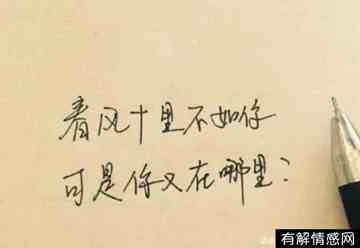 春风十里不如你
可是你又在哪里?
有解情感网